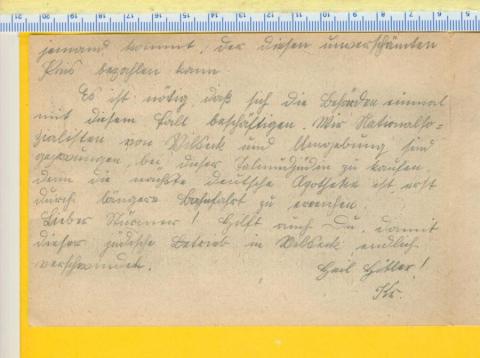 21 20 19 18 17 16 15 14 13 12 11 10 9 8 7 6 5
jemand kommt, der diesen unverschämten
Preis bezahlen kann
Es ist nötig, daß sich die Behörden einmal
mit diesem Fall beschäftigen. Wir Nationalso=
zialisten von Vilseck und Umgebung sind
gezwungen, bei dieser Talmudjüdin zu kaufen,
denn die nächste deutsche Apotheke ist erst
durch längere Bahnfahrt zu erreichen.
Lieber Stürmer! Hilf auch Du, damit
dieser jüdische Betrieb in Vilseck endlich
verschwindet.
Heil Hitler!
Kr.